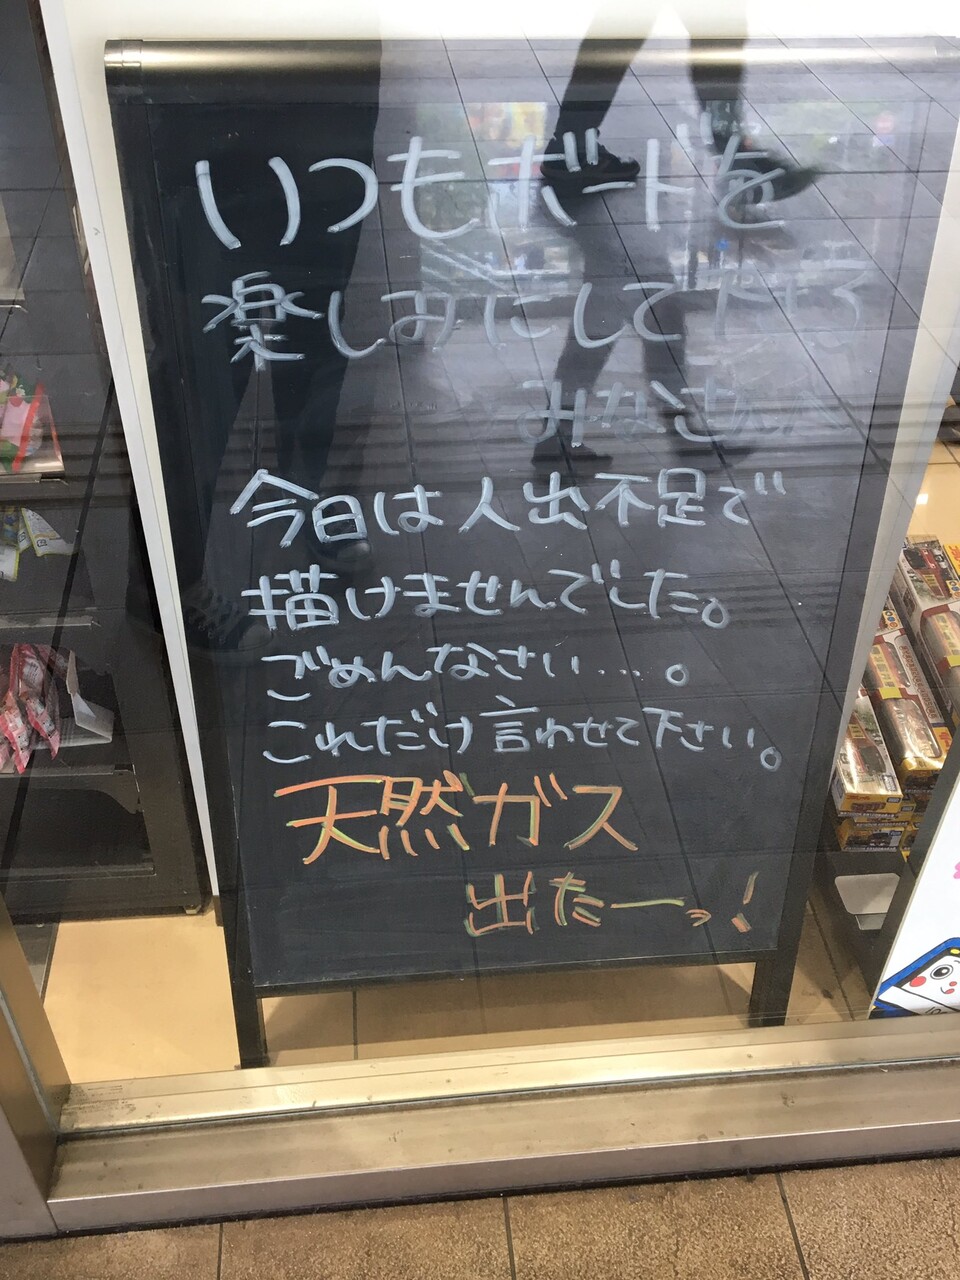 いつもボードを
楽しみにして下さる
みなさんへ
今日は人出不足で
描けませんでした。
ごめんなさい…。
これだけ言わせて下さい。
天然ガス
出たーっ!